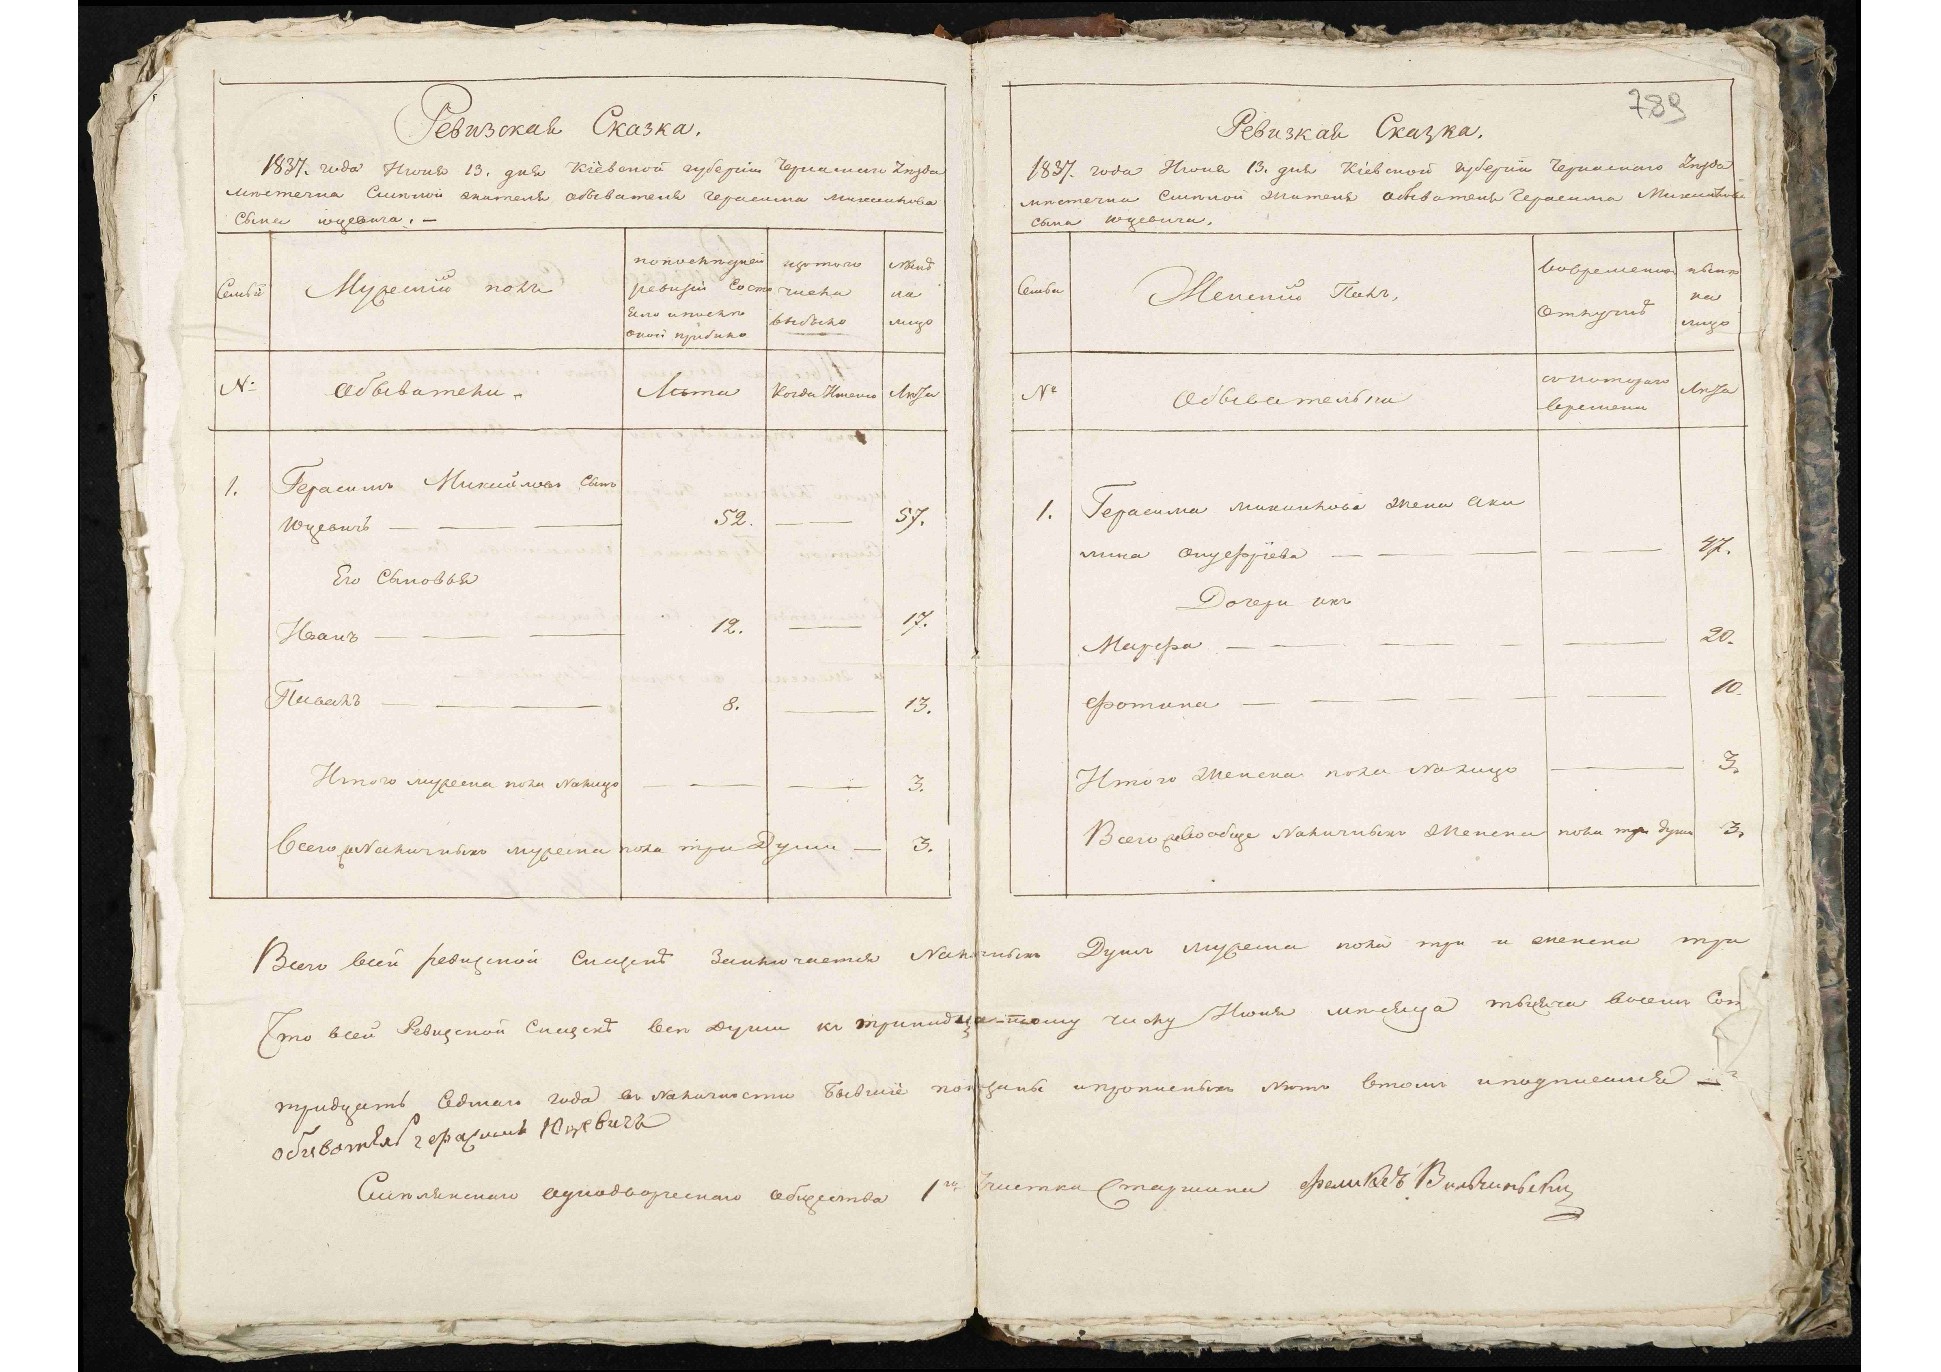 Ревизская Сказка.
1837. года Июня 13. дня Кіевской губерніи Черкаскаго Уезда
местечка Смелой жителя обывателя Герасима Михаилова
сына Юцевича. —
Семьи
Мужескій полъ
по последней
ревизіи состо
яло и после
оной прибыло
изъ того
числа
выбыло
Ныне
на
лицо
№
Обыватели.
Лета
Когда Именно
Лета
1.
Герасимъ Михайловъ сынъ
Юцевичъ — — —
52.
—
57.
Его сыновья
Иванъ — — —
12.
—
17.
Павелъ — — —
8.
—
13.
Итого мужеска пола налицо — — — 3.
Всего наличныхъ мужеска пола три Души — 3.
789
Ревизкая Сказка.
1837. года Июня 13. дня Кіевской губерніи Черкаскаго Уезда
местечка Смелой жителя обывателя Герасима Михайлова
сына Юцевича.
Семьи
Женскій Полъ,
Вовременной
отлучкѣ
ныне
на
лицо
№
Обывательки
съ котораго
времени
Лета
1.
Герасима Михаилова жена Аки
лина Онуфріева — — — — 47.
Дочери ихъ
Марфа — — — — — 20.
Фотина — — — — — 10.
Итого женска пола налицо — 3.
Всего вообще наличныхъ женска пола три души 3.
Всего всей ревизской сказкѣ Заключается Наличныхъ Душъ мужеска пола три и женска три
Что всей Ревизской Сказкѣ все души къ тринадцатому числу Июня месяца тысяча восемь сот
тридцать седмаго года въ наличности бывшіе показаны и прописныхъ нетъ втомъ и подписался
обыватель герасимъ Юцевичъ
Смелянскаго однодворческаго общества 1го Участка Старшина Феликсъ Вильчиньски